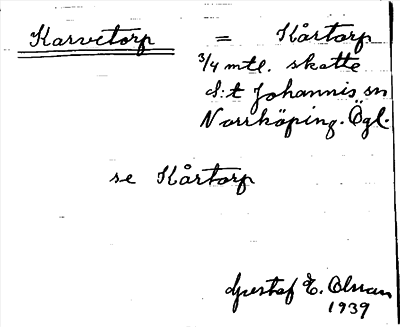 Karvetorp = Kårtorp
3/4 mtl. skatte
S:t Johannis sn
Norrköping. Ögl.
se Kårtorp
Gustaf E. Olsson
1939